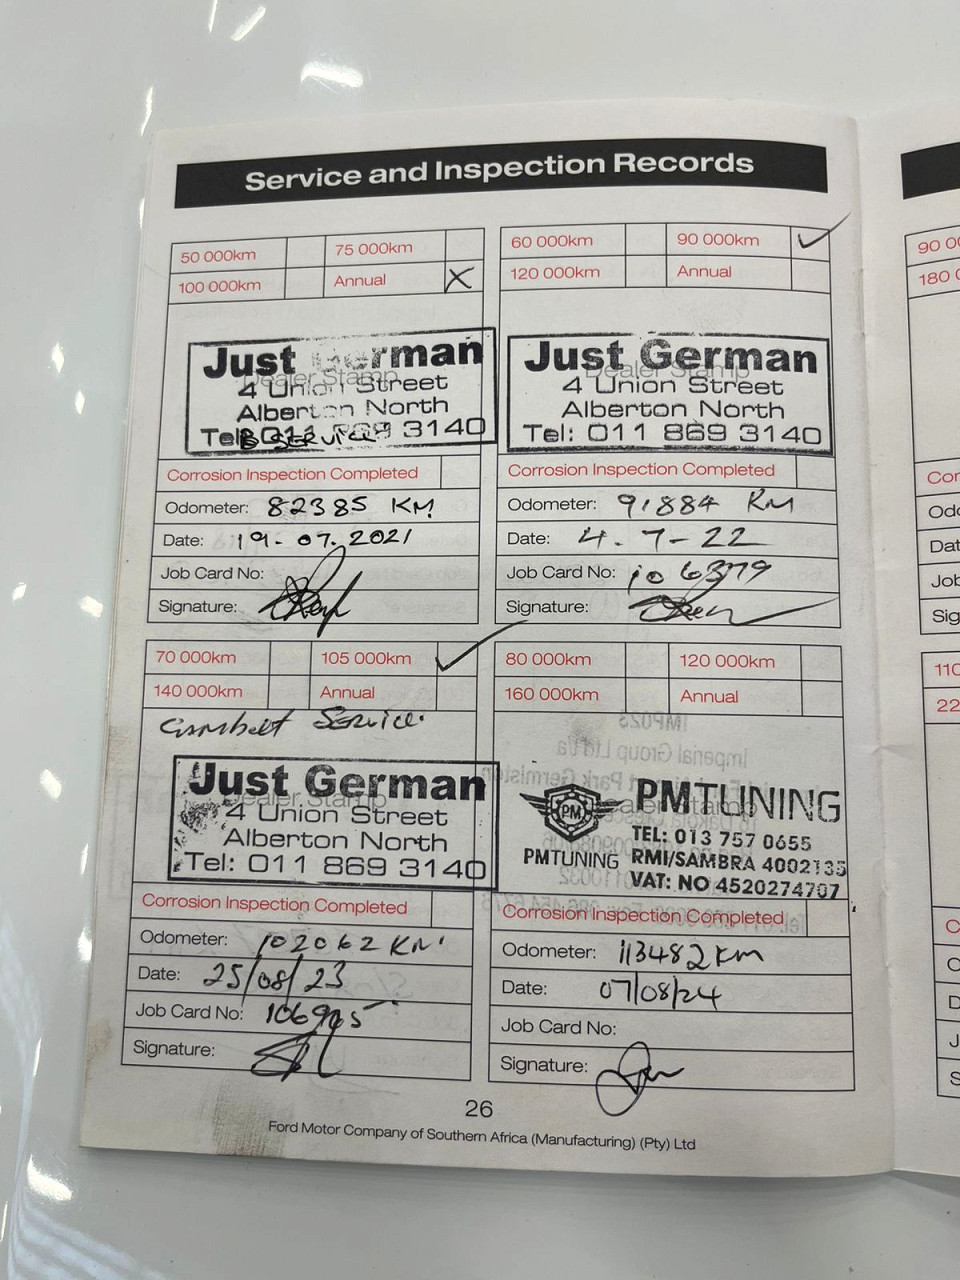 Service and Inspection Records
50 000km 75 000km
100 000km Annual X
Dealer Stamp
Just German
4 Union Street
Alberton North
Tel: 011 869 3140
B SERVICE
Corrosion Inspection Completed
Odometer: 82385 KM
Date: 19-07.2021
Job Card No:
Signature:
60 000km 90 000km ✓
120 000km Annual
Dealer Stamp
Just German
4 Union Street
Alberton North
Tel: 011 869 3140
Corrosion Inspection Completed
Odometer: 91884 KM
Date: 4.7-22
Job Card No: 106379
Signature:
70 000km 105 000km ✓
140 000km Annual
Cambelt Service.
Dealer Stamp
Just German
4 Union Street
Alberton North
Tel: 011 869 3140
Corrosion Inspection Completed
Odometer: 102062 KM
Date: 25/08/23
Job Card No: 106905
Signature:
80 000km 120 000km
160 000km Annual
Dealer Stamp
PM
PMTUNING
PMTUNING
TEL: 013 757 0655
RMI/SAMBRA 4002135
VAT: NO 4520274707
Corrosion Inspection Completed
Odometer: 113482KM
Date: 07/08/24
Job Card No:
Signature:
26
Ford Motor Company of Southern Africa (Manufacturing) (Pty) Ltd